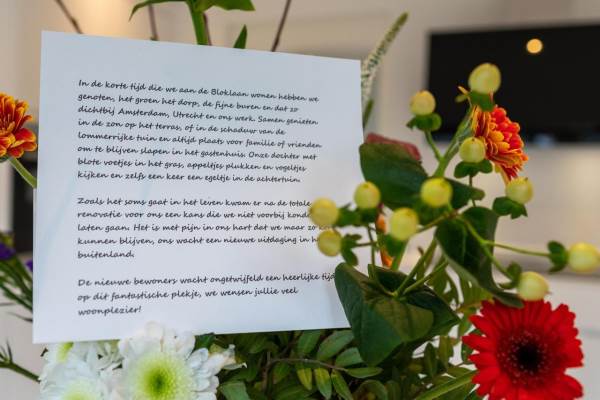 In de korte tijd die we aan de Bloklaan wonen hebben we
genoten, het groen het dorp, de fijne buren en dat zo
dichtbij Amsterdam, Utrecht en ons werk. Samen genieten
in de zon op het terras, of in de schaduw van de
lommerrijke tuin en altijd plaats voor familie of vrienden
om te blijven slapen in het gastenhuis. Onze dochter met
blote voetjes in het gras, appeltjes plukken en vogeltjes
kijken en zelfs een keer een egeltje in de achtertuin.
Zoals het soms gaat in het leven kwam er na de totale
renovatie voor ons een kans die we niet voorbij
laten gaan. Het is met pijn in ons hart dat we maar zo
kunnen blijven, ons wacht een nieuwe uitdaging in
buitenland.
De nieuwe bewoners wacht ongetwijfeld een heerlijke
op dit fantastische plekje, we wensen jullie veel
woonplezier!